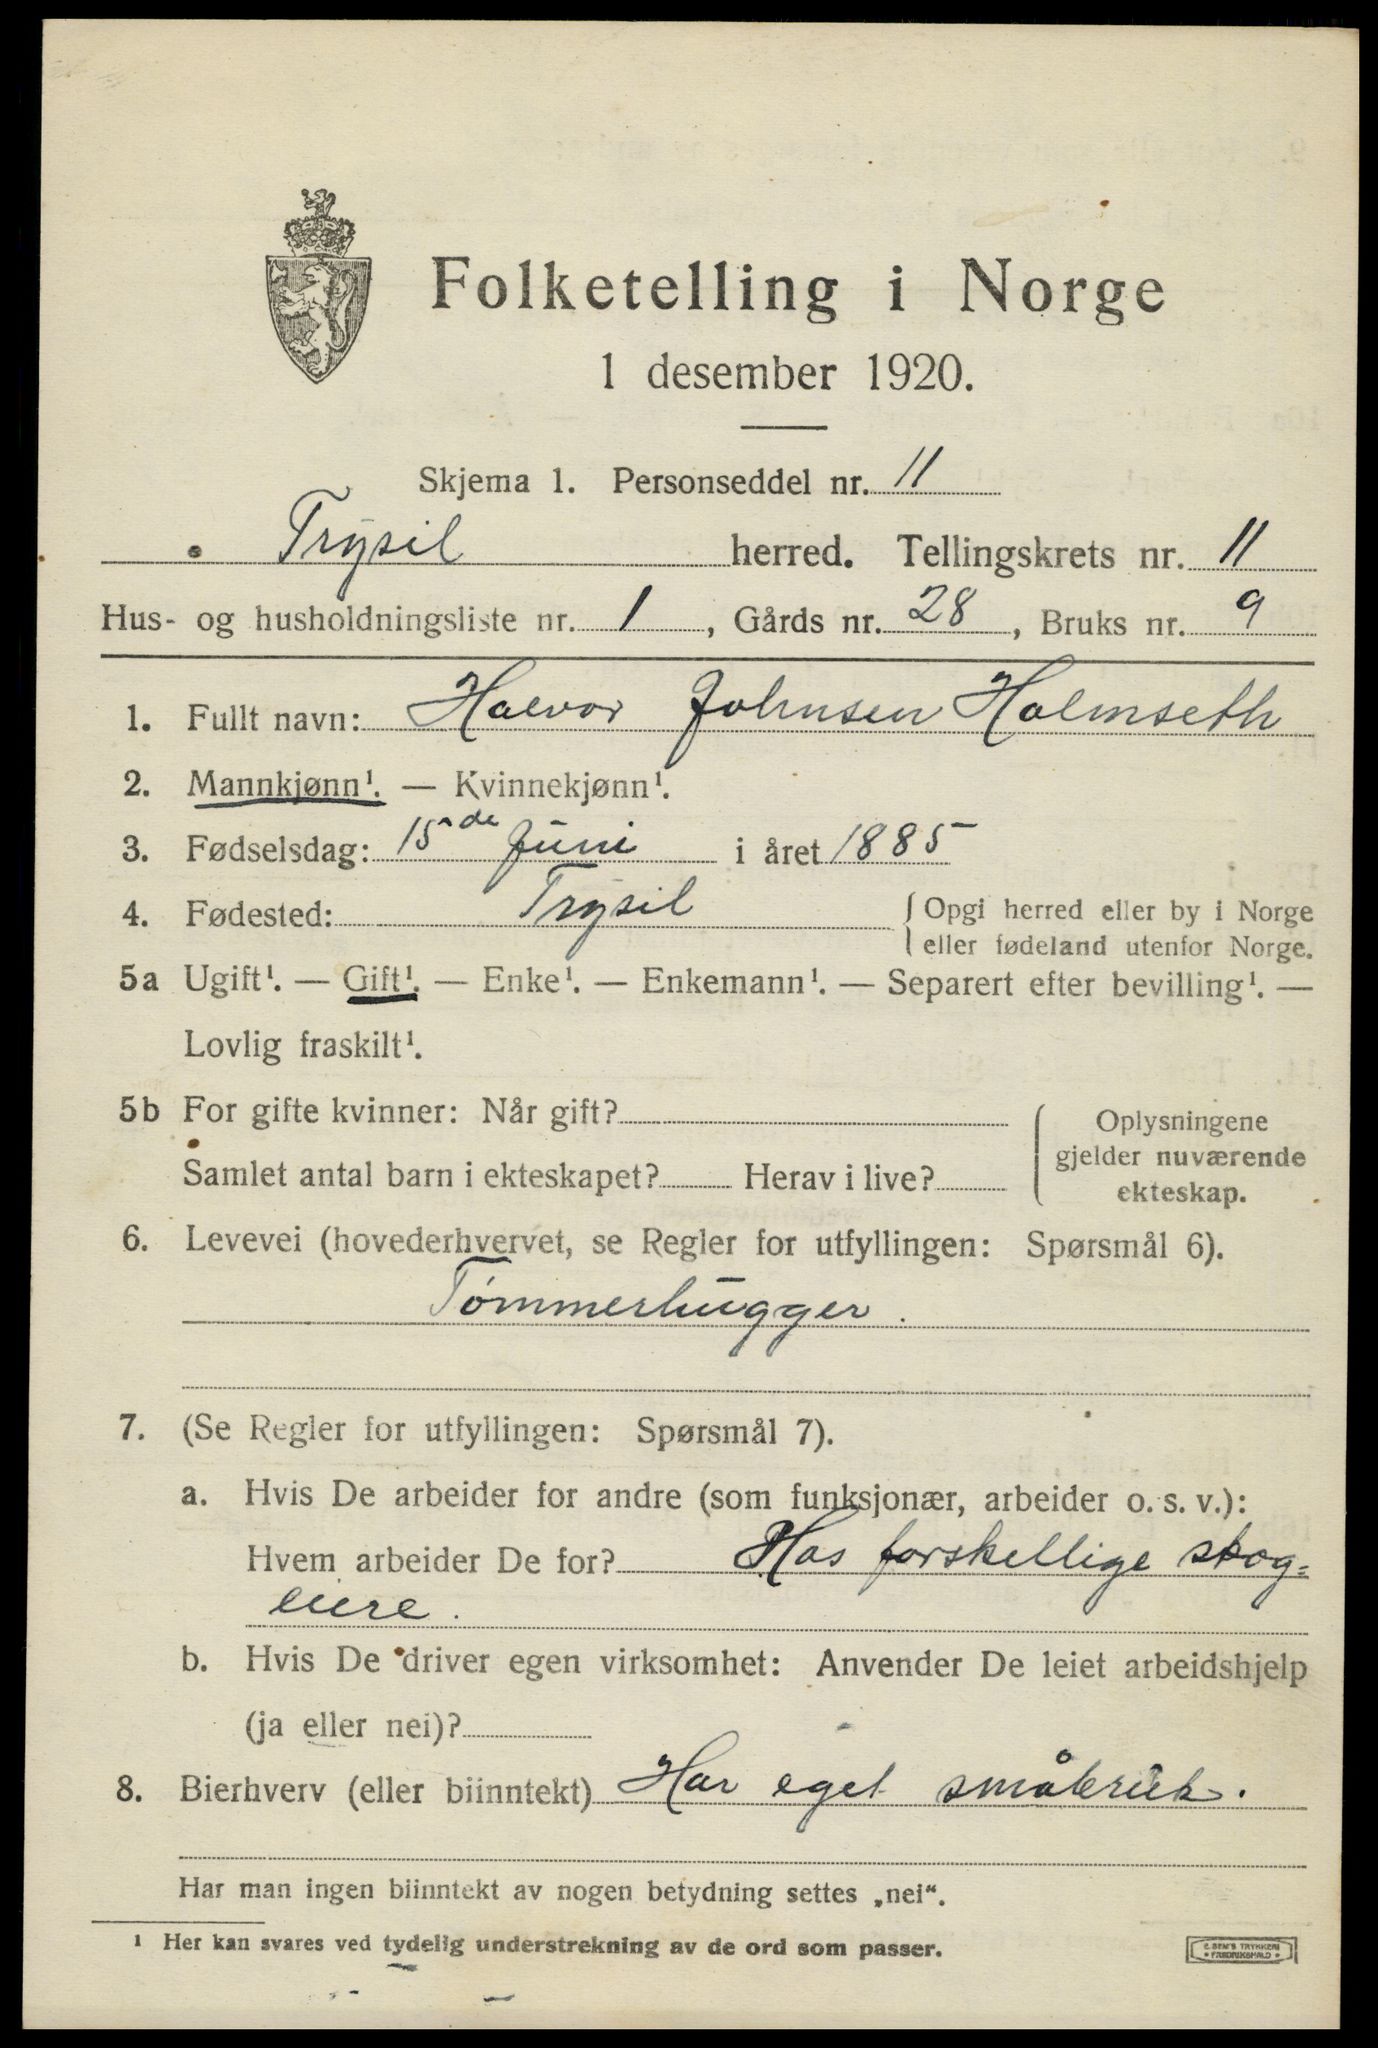 Folketelling i Norge
1 desember 1920.
Skjema 1. Personseddel nr. 11
Trysil herred. Tellingskrets nr. 11
Hus- og husholdningsliste nr. 1, Gårds nr. 28, Bruks nr. 9
1. Fullt navn: Halvor Johnsen Holmseth
2. Mannkjønn¹. — Kvinnekjønn¹.
3. Fødselsdag: 15de Juni i året 1885
4. Fødested: Trysil { Opgi herred eller by i Norge
eller fødeland utenfor Norge.
5a Ugift¹. — Gift¹. — Enke¹. — Enkemann¹. — Separert efter bevilling¹. —
Lovlig fraskilt¹.
5b For gifte kvinner: Når gift?
Samlet antal barn i ekteskapet? Herav i live?
Oplysningene
gjelder nuværende
ekteskap.
6. Levevei (hovederhvervet, se Regler for utfyllingen: Spørsmål 6).
Tømmerhugger.
7. (Se Regler for utfyllingen: Spørsmål 7).
a. Hvis De arbeider for andre (som funksjonær, arbeider o. s. v.):
Hvem arbeider De for? Hos forskellige skog=
eiere.
b. Hvis De driver egen virksomhet: Anvender De leiet arbeidshjelp
(ja eller nei)?
8. Bierhverv (eller biinntekt) Har eget småbruk.
Har man ingen biinntekt av nogen betydning settes „nei“.
¹ Her kan svares ved tydelig understrekning av de ord som passer.
E. SEM'S TRYKKERI
• FREDRIKSHALD •